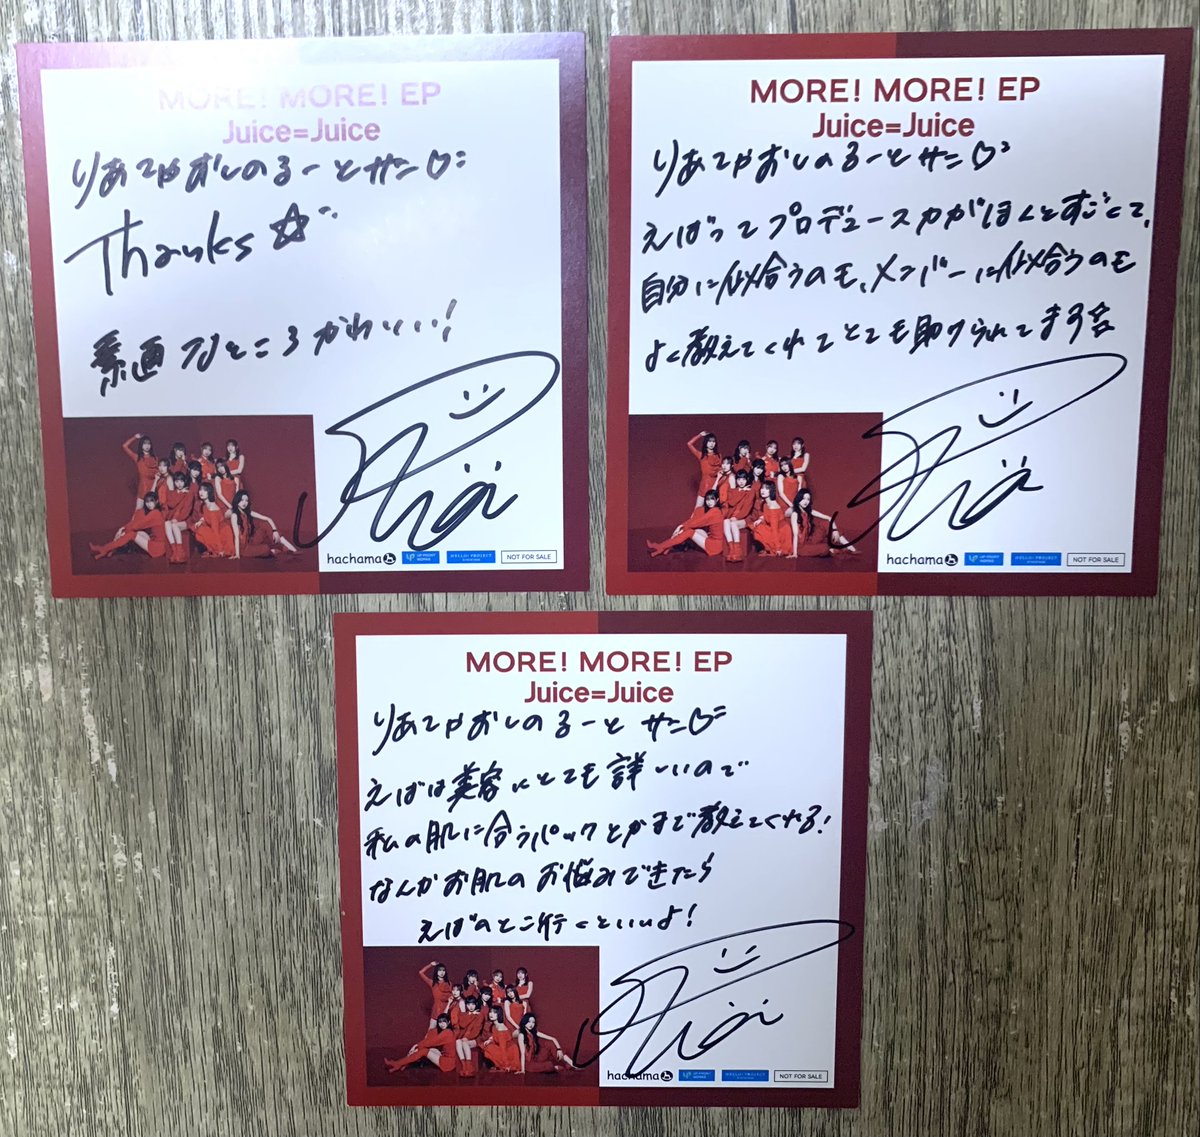 MORE! MORE! EP
Juice=Juice
りあてやおしのるーとサン♡
Thanks☆
なところかわいい!
hachama
UP-FRONT WORKS
HELLO! PROJECT
NOT FOR SALE
MORE! MORE! EP
Juice=Juice
りあてやおしのるーとサン♡
えばってプロデュース力がほんとすごくて、
自分に似合うのも、メンバーに似合うのも
よく教えてくれてとても助けられてます
hachama
UP-FRONT WORKS
HELLO! PROJECT
NOT FOR SALE
MORE! MORE! EP
Juice=Juice
りあてやおしのるーとサン♡
えばは美容にとても詳しいので
私の肌に合うパックとかまで教えてくれる!
なんかお肌のお悩みできたら
えばのとこ行くといいよ!
hachama
UP-FRONT WORKS
HELLO! PROJECT
NOT FOR SALE